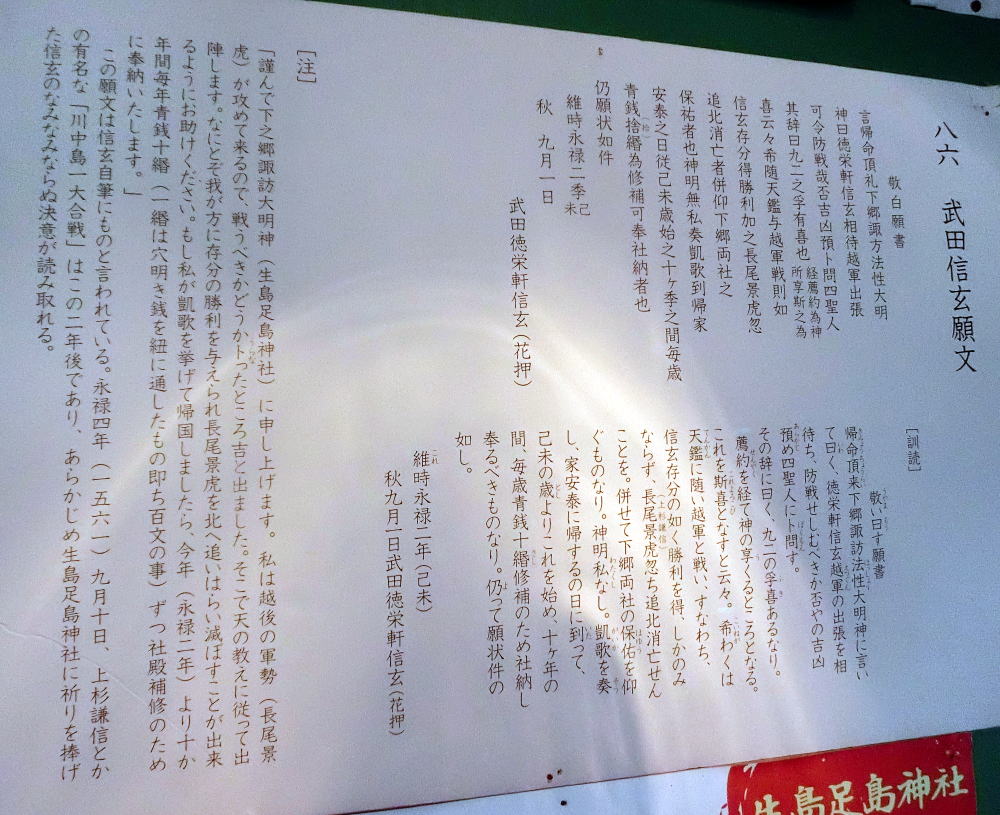 八六　武田信玄願文
敬白願書
言帰命頂礼下郷諏方法性大明
神曰徳栄軒信玄相待越軍出張
可令防戦哉否吉凶預卜問四聖人
其辞曰九二之孚有喜也 経薦約為神 所享斯之為
喜云々希随天鑑与越軍戦則如
信玄存分得勝利加之長尾景虎忽
追北消亡者併仰下郷両社之
保祐者也神明無私奏凱歌到帰家
安泰之日従己未歳始之十ヶ季之間毎歳
青銭捨緡為修補可奉社納者也
(拾)
仍願状如件
維時永禄二季己未
秋　九月一日
武田徳栄軒信玄(花押)
[訓読]
敬い曰す願書
帰命頂来下郷諏訪法性大明神に言い
て曰く、徳栄軒信玄越軍の出張を相
待ち、防戦せしむべきか否やの吉凶
預め四聖人に卜問す。
その辞に曰く、九二の孚喜あるなり。
薦約を経て神の享くるところとなる。
これを斯喜となすと云々。希わくは
天鑑に随い越軍と戦い、すなわち、
信玄存分の如く勝利を得、しかのみ
ならず、長尾景虎忽ち追北消亡せん
(上杉謙信)
ことを。併せて下郷両社の保佑を仰
ぐものなり。神明私なし。凱歌を奏
し、家安泰に帰するの日に到って、
己未の歳よりこれを始め、十ヶ年の
間、毎歳青銭十緡修補のため社納し
奉るべきものなり。仍って願状件の
如し。
維時永禄二年(己未)
秋九月一日武田徳栄軒信玄(花押)
[注]
「謹んで下之郷諏訪大明神(生島足島神社)に申し上げます。私は越後の軍勢(長尾景
虎)が攻めて来るので、戦うべきかどうか卜ったところ吉と出ました。そこで天の教えに従って出
陣します。なにとぞ我が方に存分の勝利を与えられ長尾景虎を北へ追いはらい滅ぼすことが出来
るようにお助けください。もし私が凱歌を挙げて帰国しましたら、今年(永禄二年)より十か
年間毎年青銭十緡(一緡は穴明き銭を紐に通したもの即ち百文の事)ずつ社殿補修のため
に奉納いたします。」
この願文は信玄自筆にものと言われている。永禄四年(一五六一)九月十日、上杉謙信とか
の有名な「川中島一大合戦」はこの二年後であり、あらかじめ生島足島神社に祈りを捧げ
た信玄のなみなみならぬ決意が読み取れる。
生島足島神社